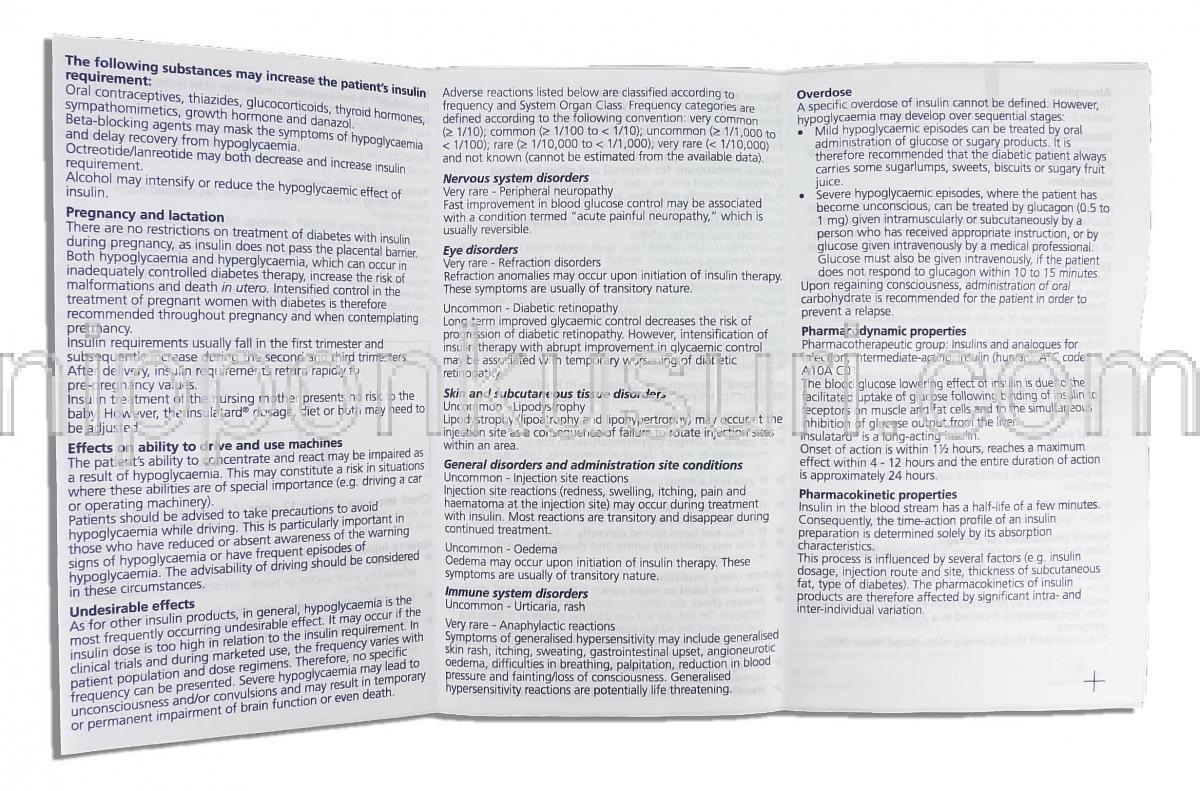 The following substances may increase the patient's insulin
requirement:
Oral contraceptives, thiazides, glucocorticoids, thyroid hormones,
sympathomimetics, growth hormone and danazol.
Beta-blocking agents may mask the symptoms of hypoglycaemia
and delay recovery from hypoglycaemia.
Octreotide/lanreotide may both decrease and increase insulin
requirement.
Alcohol may intensify or reduce the hypoglycaemic effect of
insulin.
Pregnancy and lactation
There are no restrictions on treatment of diabetes with insulin
during pregnancy, as insulin does not pass the placental barrier.
Both hypoglycaemia and hyperglycaemia, which can occur in
inadequately controlled diabetes therapy, increase the risk of
malformations and death in utero. Intensified control in the
treatment of pregnant women with diabetes is therefore
recommended throughout pregnancy and when contemplating
pregnancy.
Insulin requirements usually fall in the first trimester and
subsequently increase during the second and third trimesters.
After delivery, insulin requirements return rapidly to
pre-pregnancy values.
Insulin treatment of the nursing mother presents no risk to the
baby. However, the Insulatard® dosage, diet or both may need to
be adjusted.
Effects on ability to drive and use machines
The patient's ability to concentrate and react may be impaired as
a result of hypoglycaemia. This may constitute a risk in situations
where these abilities are of special importance (e.g. driving a car
or operating machinery).
Patients should be advised to take precautions to avoid
hypoglycaemia while driving. This is particularly important in
those who have reduced or absent awareness of the warning
signs of hypoglycaemia or have frequent episodes of
hypoglycaemia. The advisability of driving should be considered
in these circumstances.
Undesirable effects
As for other insulin products, in general, hypoglycaemia is the
most frequently occurring undesirable effect. It may occur if the
insulin dose is too high in relation to the insulin requirement. In
clinical trials and during marketed use, the frequency varies with
patient population and dose regimens. Therefore, no specific
frequency can be presented. Severe hypoglycaemia may lead to
unconsciousness and/or convulsions and may result in temporary
or permanent impairment of brain function or even death.
Adverse reactions listed below are classified according to
frequency and System Organ Class. Frequency categories are
defined according to the following convention: very common
(≥ 1/10); common (≥ 1/100 to < 1/10); uncommon (≥ 1/1,000 to
< 1/100); rare (≥ 1/10,000 to < 1/1,000); very rare (< 1/10,000)
and not known (cannot be estimated from the available data).
Nervous system disorders
Very rare - Peripheral neuropathy
Fast improvement in blood glucose control may be associated
with a condition termed "acute painful neuropathy," which is
usually reversible.
Eye disorders
Very rare - Refraction disorders
Refraction anomalies may occur upon initiation of insulin therapy.
These symptoms are usually of transitory nature.
Uncommon - Diabetic retinopathy
Long-term improved glycaemic control decreases the risk of
progression of diabetic retinopathy. However, intensification of
insulin therapy with abrupt improvement in glycaemic control
may be associated with temporary worsening of diabetic
retinopathy.
Skin and subcutaneous tissue disorders
Uncommon - Lipodystrophy
Lipodystrophy (lipoatrophy and lipohypertrophy) may occur at the
injection site as a consequence of failure to rotate injection sites
within an area.
General disorders and administration site conditions
Uncommon - Injection site reactions
Injection site reactions (redness, swelling, itching, pain and
haematoma at the injection site) may occur during treatment
with insulin. Most reactions are transitory and disappear during
continued treatment.
Uncommon - Oedema
Oedema may occur upon initiation of insulin therapy. These
symptoms are usually of transitory nature.
Immune system disorders
Uncommon - Urticaria, rash
Very rare - Anaphylactic reactions
Symptoms of generalised hypersensitivity may include generalised
skin rash, itching, sweating, gastrointestinal upset, angioneurotic
oedema, difficulties in breathing, palpitation, reduction in blood
pressure and fainting/loss of consciousness. Generalised
hypersensitivity reactions are potentially life threatening.
Overdose
A specific overdose of insulin cannot be defined. However,
hypoglycaemia may develop over sequential stages:
• Mild hypoglycaemic episodes can be treated by oral
administration of glucose or sugary products. It is
therefore recommended that the diabetic patient always
carries some sugarlumps, sweets, biscuits or sugary fruit
juice.
• Severe hypoglycaemic episodes, where the patient has
become unconscious, can be treated by glucagon (0.5 to
1 mg) given intramuscularly or subcutaneously by a
person who has received appropriate instruction, or by
glucose given intravenously by a medical professional.
Glucose must also be given intravenously, if the patient
does not respond to glucagon within 10 to 15 minutes.
Upon regaining consciousness, administration of oral
carbohydrate is recommended for the patient in order to
prevent a relapse.
Pharmacodynamic properties
Pharmacotherapeutic group: Insulins and analogues for
injection, intermediate-acting, insulin (human). ATC code:
A10A C01.
The blood glucose lowering effect of insulin is due to the
facilitated uptake of glucose following binding of insulin to
receptors on muscle and fat cells and to the simultaneous
inhibition of glucose output from the liver.
Insulatard® is a long-acting insulin.
Onset of action is within 1½ hours, reaches a maximum
effect within 4 - 12 hours and the entire duration of action
is approximately 24 hours.
Pharmacokinetic properties
Insulin in the blood stream has a half-life of a few minutes.
Consequently, the time-action profile of an insulin
preparation is determined solely by its absorption
characteristics.
This process is influenced by several factors (e.g. insulin
dosage, injection route and site, thickness of subcutaneous
fat, type of diabetes). The pharmacokinetics of insulin
products are therefore affected by significant intra- and
inter-individual variation.
nipponkusuri.com